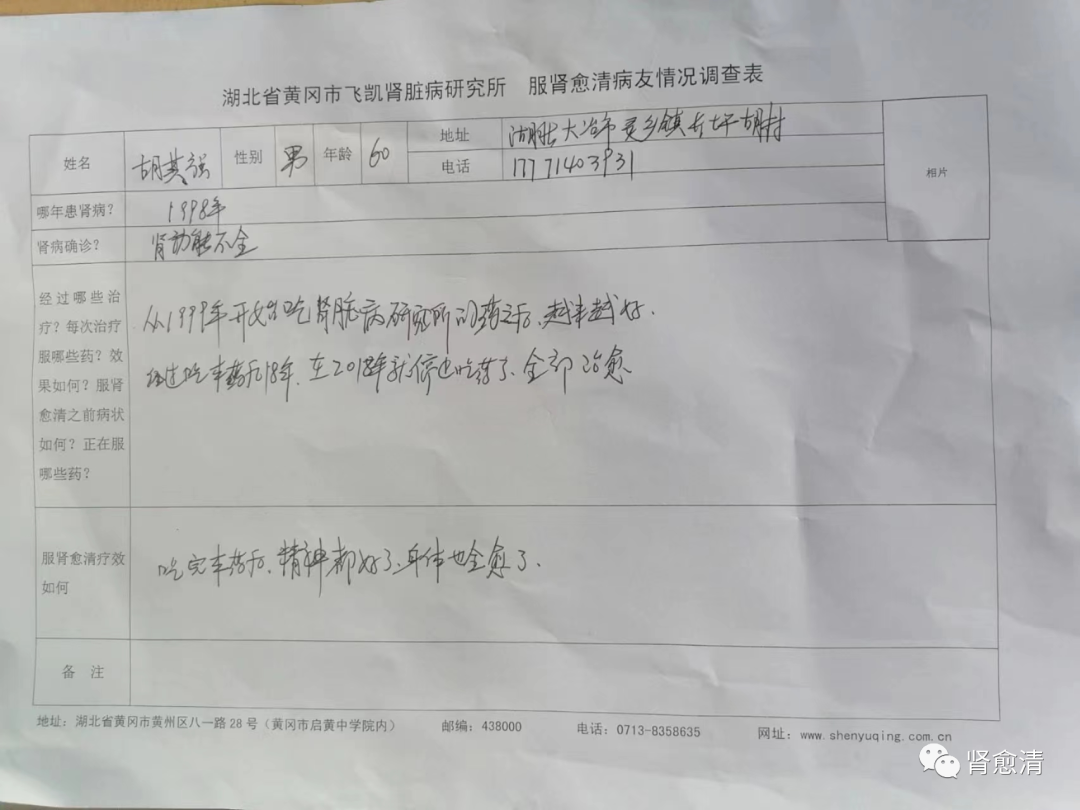 湖北省黄冈市飞凯肾脏病研究所 服肾愈清病友情况调查表
姓名 胡其强 性别 男 年龄 60 地址 湖北大冶市灵乡镇 胡村
电话 17771403931
相片
哪年患肾病? 1998年
肾病确诊? 肾功能不全
经过哪些治
疗?每次治疗
服哪些药?效
果如何?服肾
愈清之前病状
如何?正在服
哪些药?
从1999年开始吃肾脏病研究所的药之后、越来越好.
经过吃本药后18年、在2018年就停止吃药了、全部治愈
服肾愈清疗效
如何
吃完本药后、精神都好了、身体也全愈了.
备注
地址:湖北省黄冈市黄州区八一路28号(黄冈市启黄中学院内) 邮编:438000 电话:0713-8358635 网址:www.shenyuqing.com.cn
肾愈清